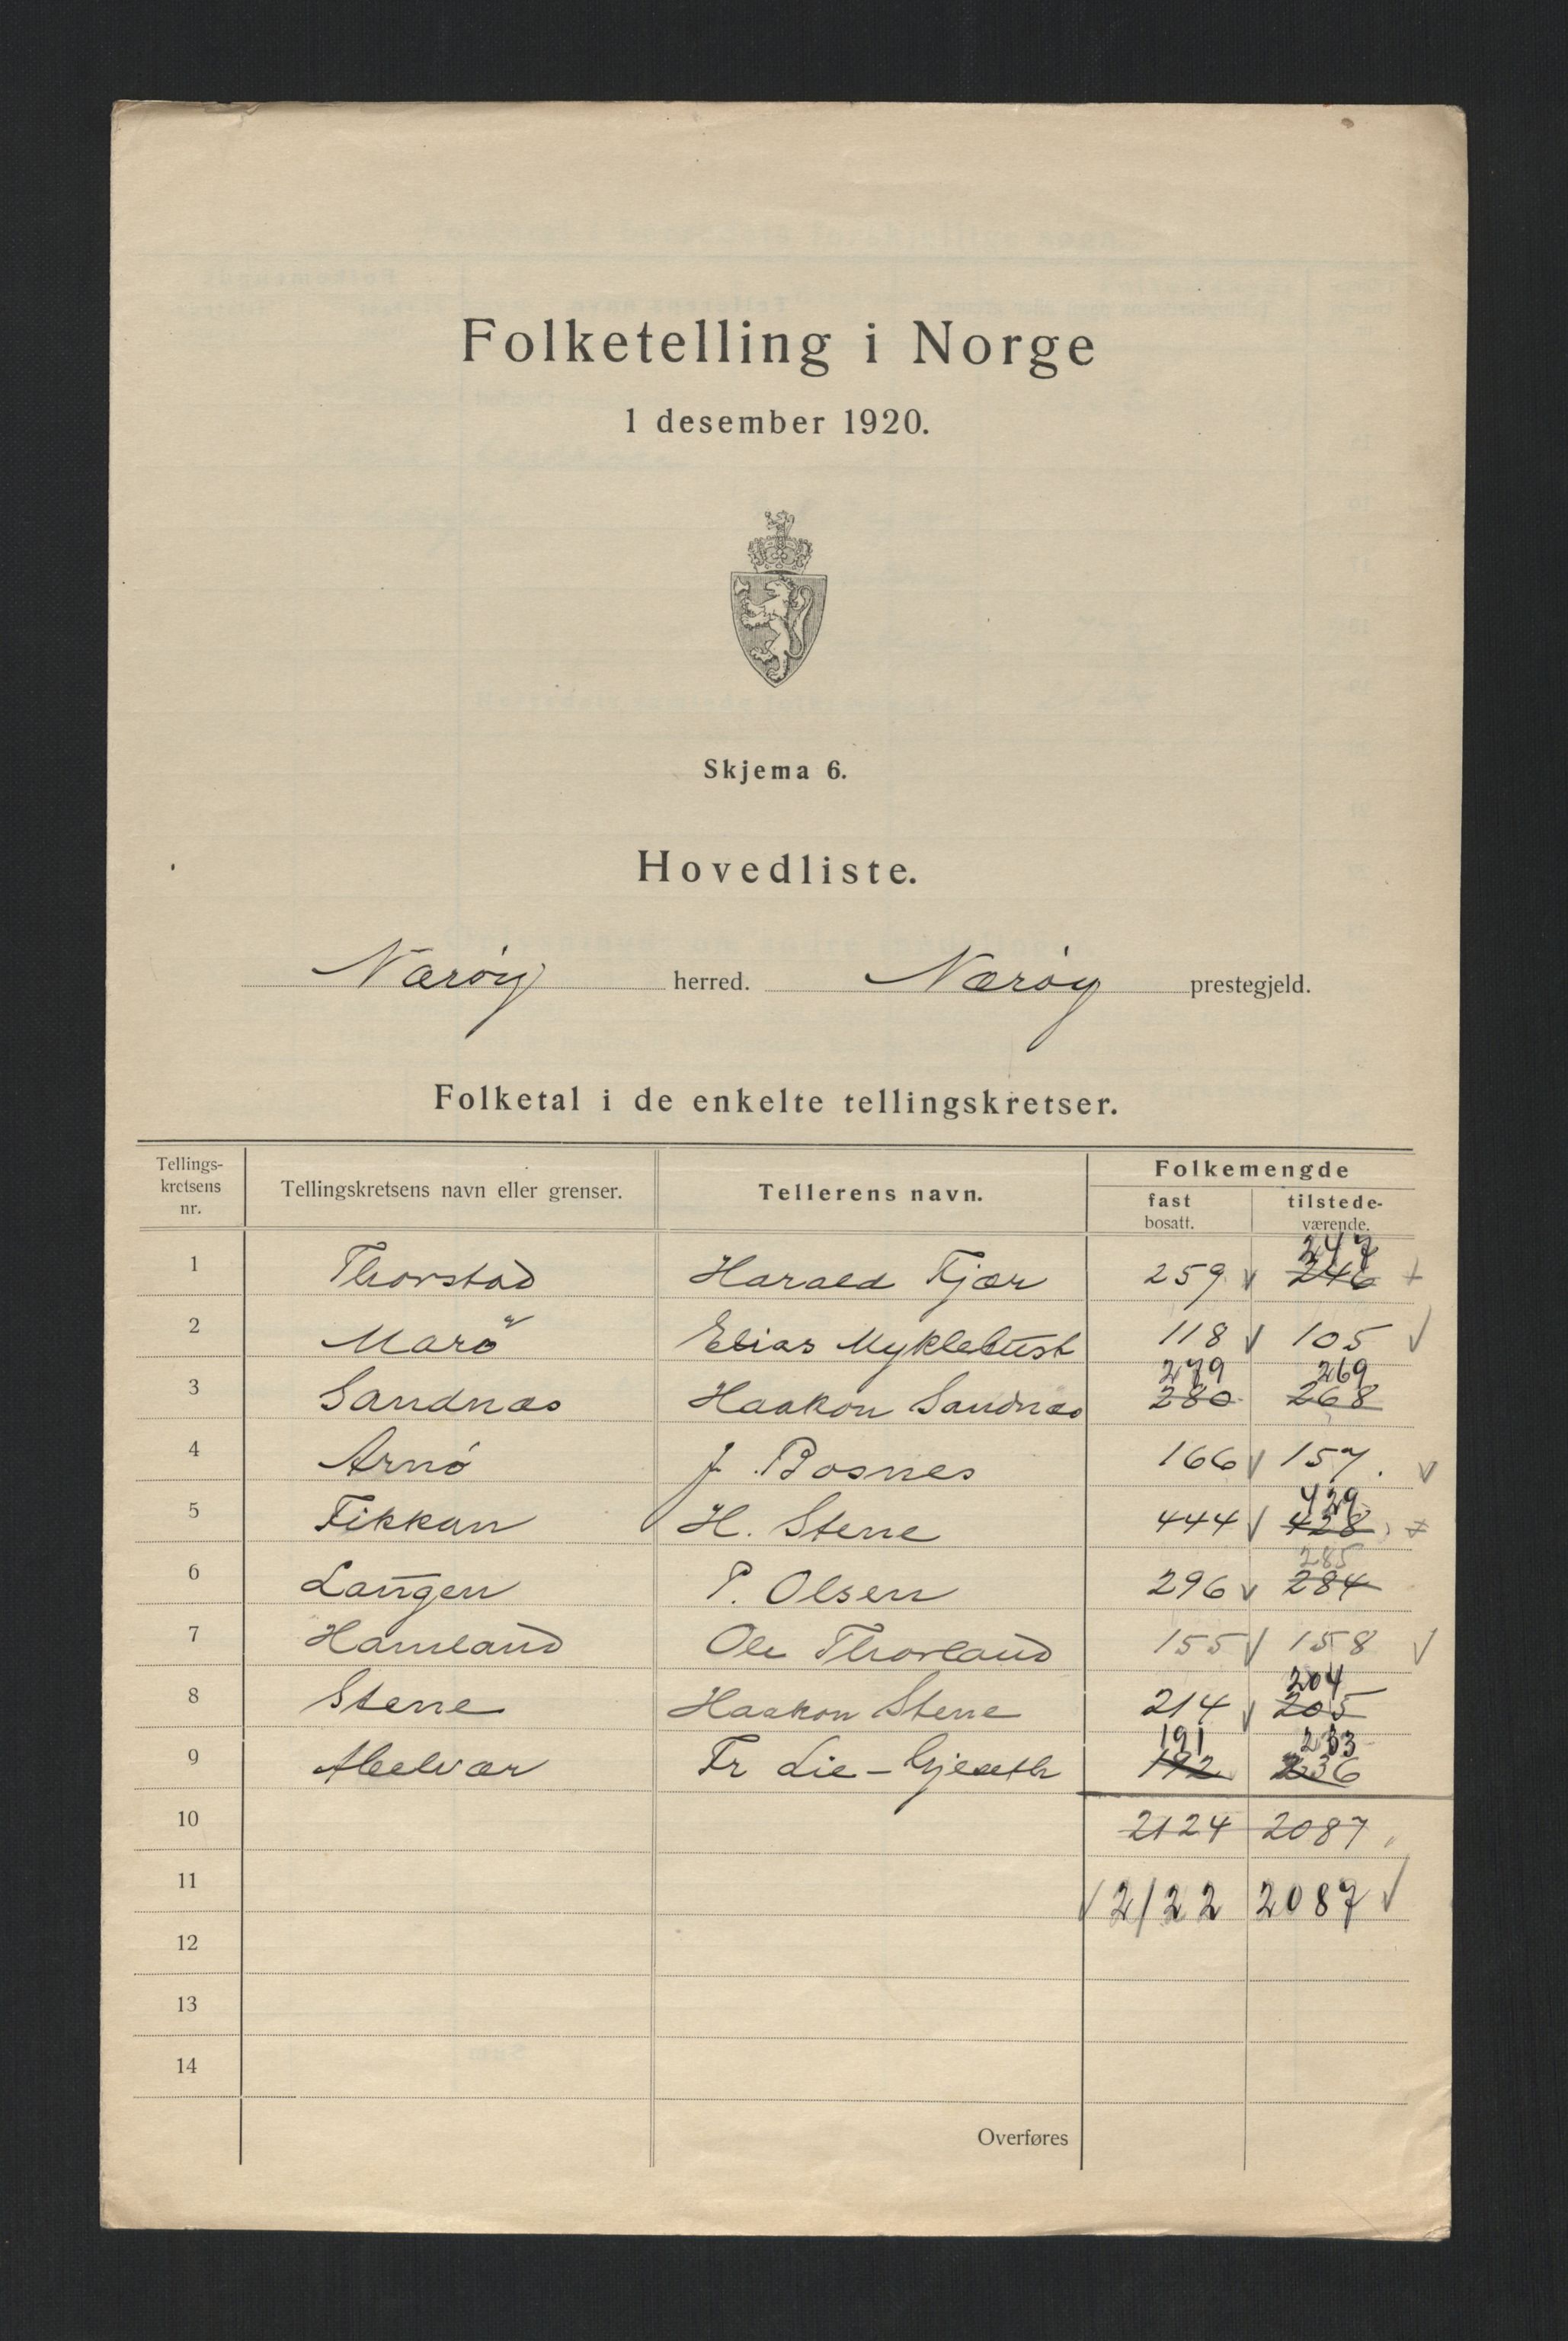 Folketelling i Norge
1 desember 1920.
Skjema 6.
Hovedliste.
Nærøy herred. Nærøy prestegjeld.
Folketal i de enkelte tellingskretser.
Tellings-kretsens nr. Tellingskretsens navn eller grenser. Tellerens navn. Folkemengde
fast bosatt. tilstede-værende.
247
1 Thorstad Harald Fjær 259 246
2 Marø Elias Myklebust 118 105
279 269
3 Sandnæs Haakon Sandnæs 280 268
4 Arnø J. Bosnes 166 157.
429
5 Fikkan H. Stene 444 428
285
6 Laugen P. Olsen 296 284
7 Hamland Ole Thorland 155 158
204
8 Stene Haakon Stene 214 205
191 233
9 Abelvær Fr Lie - 192 236
10 2124 2087
11 2122 2087
12
13
14
Overføres